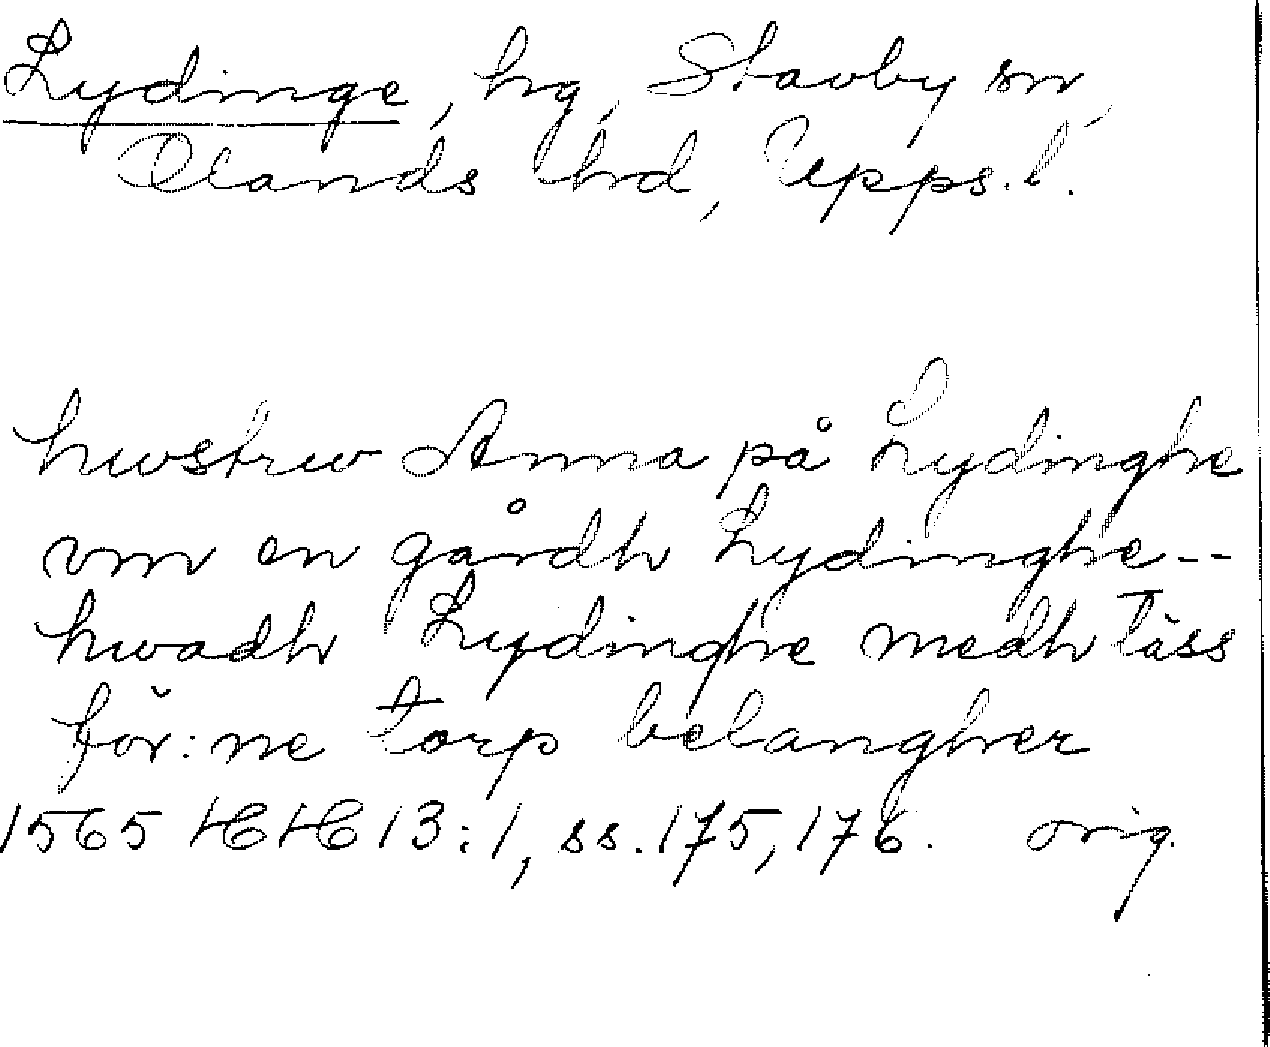 Lydinge, hg, Stavby sn,
Olands hd, Upps. l.
hwstrw Anna på Lydinghe
vm en gårdh Lydinghe--
hwadh Lydinghe medh täss
för:ne torp belangher
1565 HH 13:1, ss. 175, 176. orig.